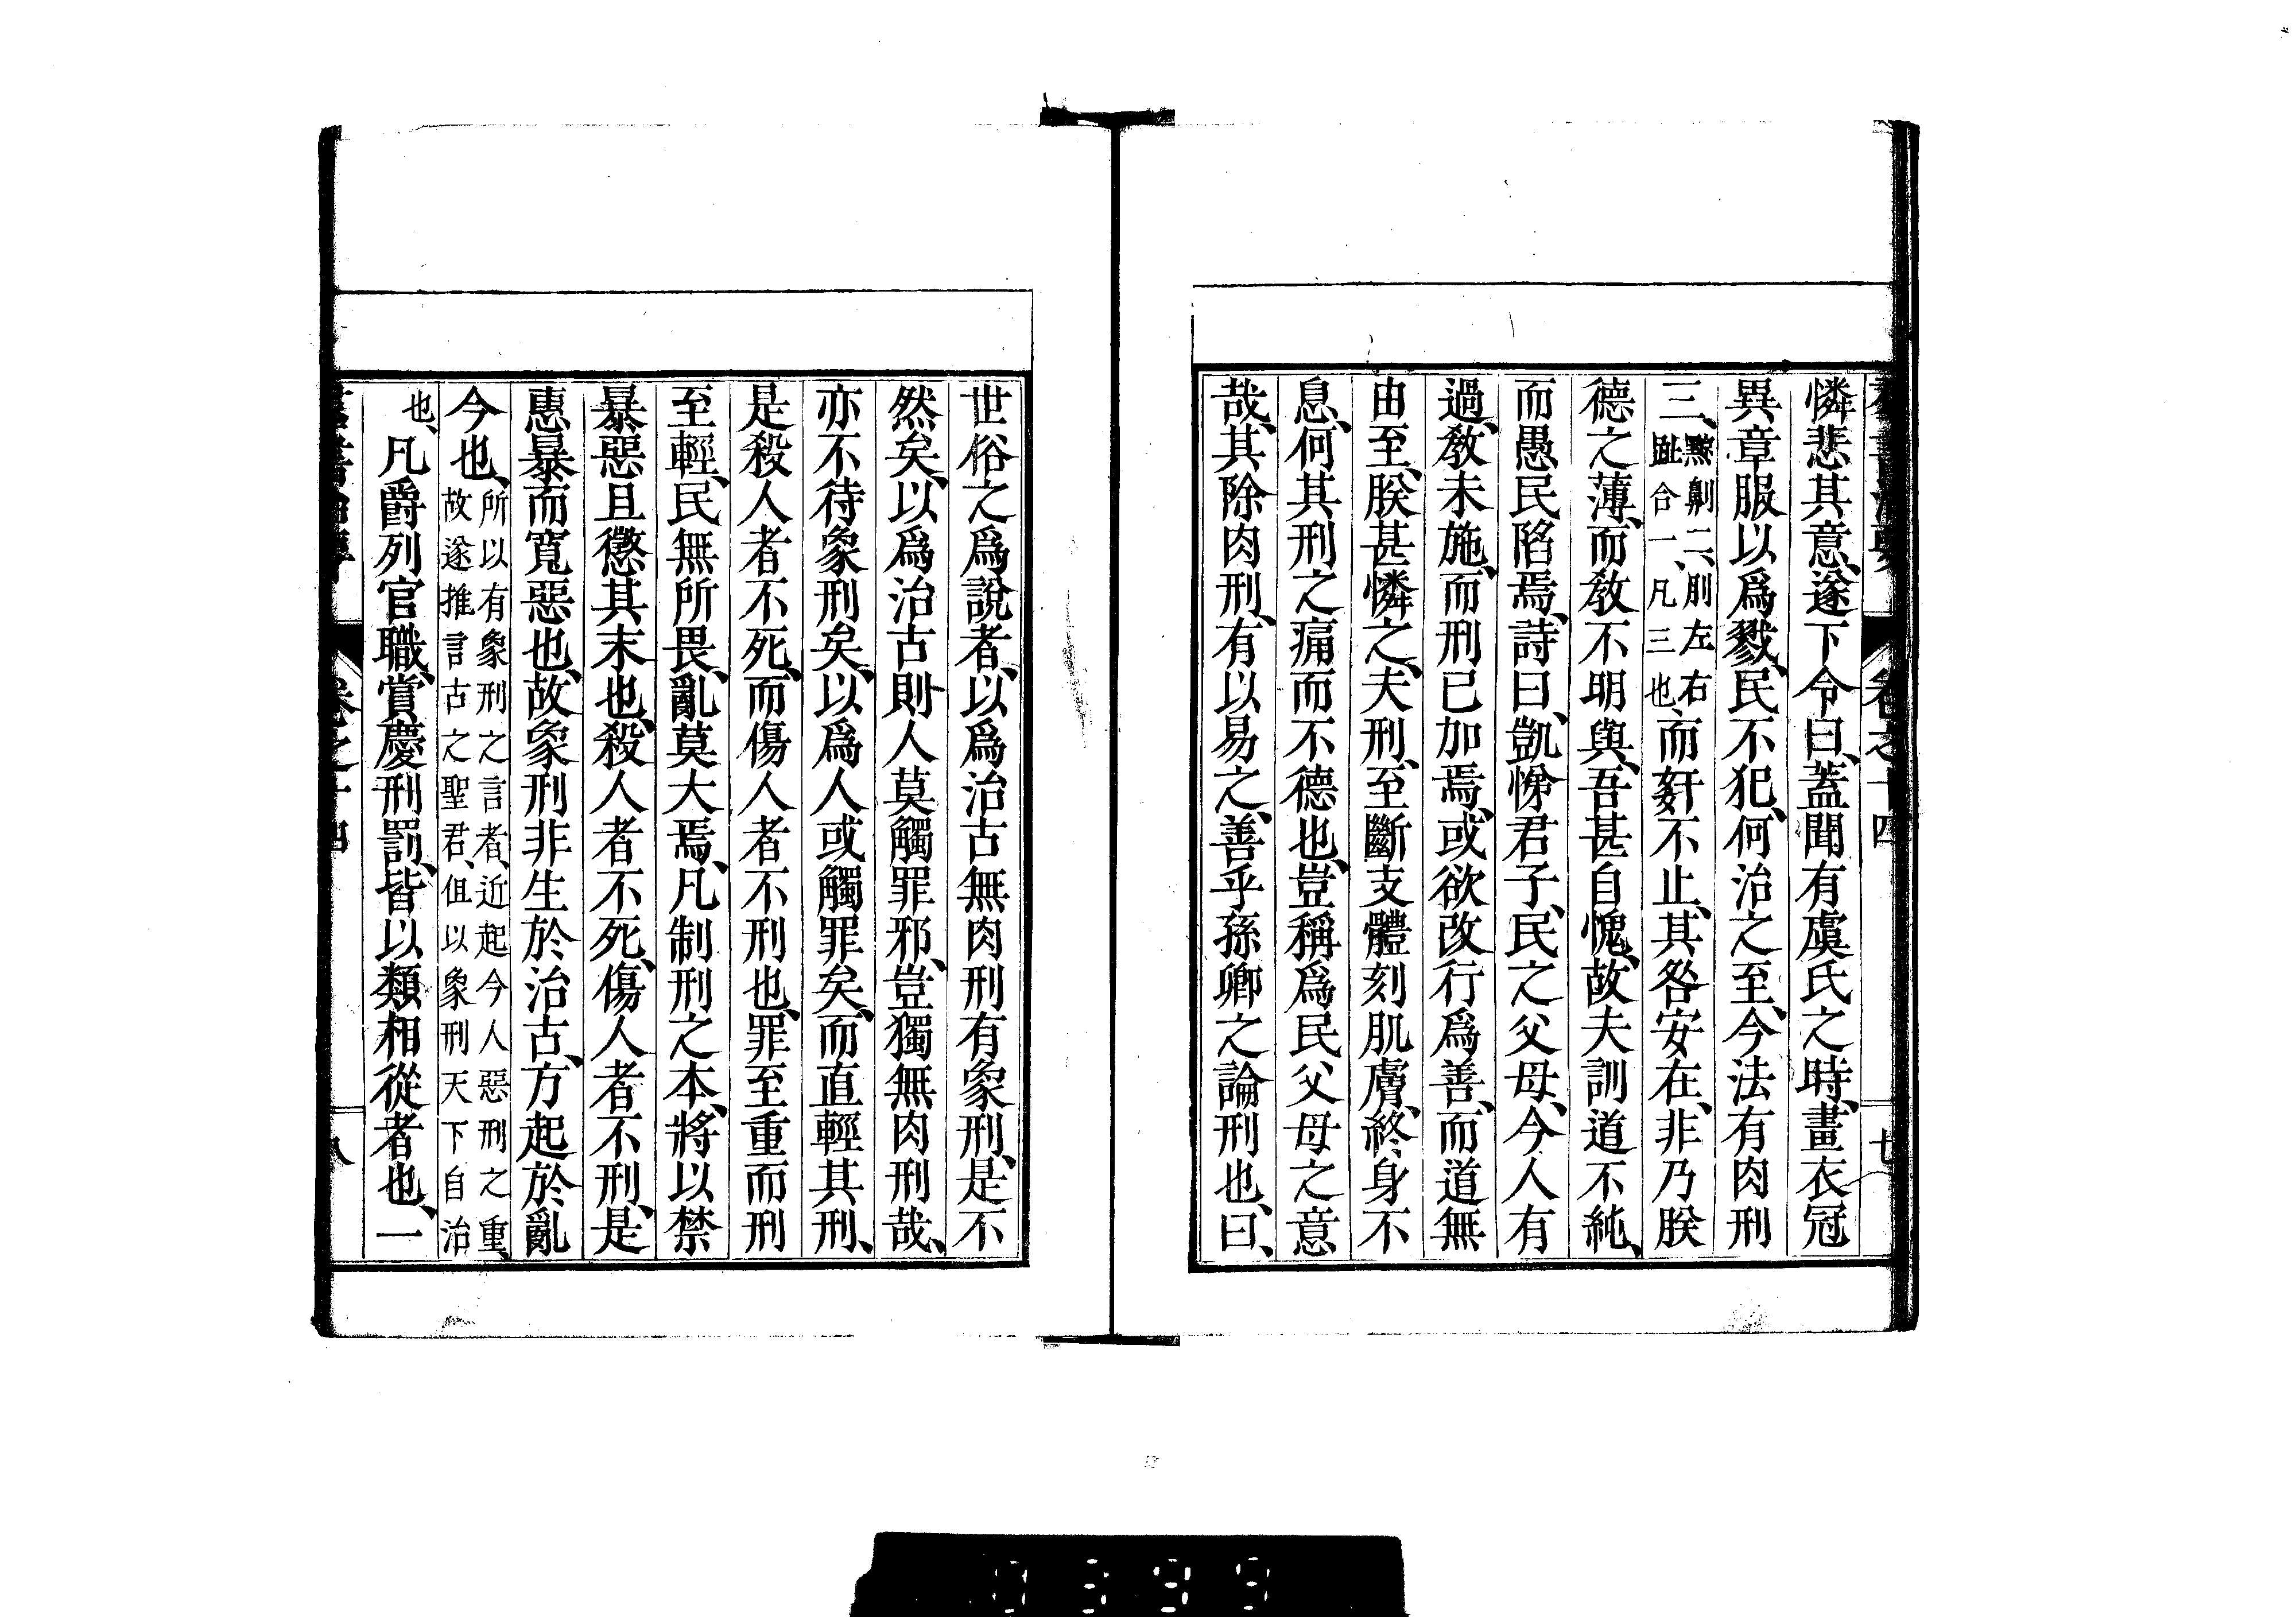 卷之十四
憐悲其意、遂下令曰、蓋聞有虞氏之時、畫衣冠
異章服以爲戮、民不犯、何治之至、今法有肉刑
三、黥劓二、刖左右趾合一、凡三也、而姧不止、其咎安在、非乃朕
德之薄、而教不明與、吾甚自愧、故夫訓道不純、
而愚民陷焉、詩曰、凱悌君子、民之父母、今人有
過、教未施、而刑已加焉、或欲改行爲善、而道無
由至、朕甚憐之、夫刑、至斷支體刻肌膚、終身不
息、何其刑之痛而不德也、豈稱爲民父母之意
哉、其除肉刑、有以易之、善乎孫卿之論刑也、曰、
世俗之爲說者、以爲治古無肉刑有象刑、是不
然矣、以爲治古則人莫觸罪邪、豈獨無肉刑哉、
亦不待象刑矣、以爲人或觸罪矣、而直輕其刑、
是殺人者不死、而傷人者不刑也、罪至重而刑
至輕、民無所畏、亂莫大焉、凡制刑之本、將以禁
暴惡且懲其末也、殺人者不死、傷人者不刑、是
惠暴而寬惡也、故象刑非生於治古、方起於亂
今也、所以有象刑之言者、近起今人惡刑之重、故遂推言古之聖君、但以象刑天下自治
也、凡爵列官職、賞慶刑罰、皆以類相從者也、一
八
0399